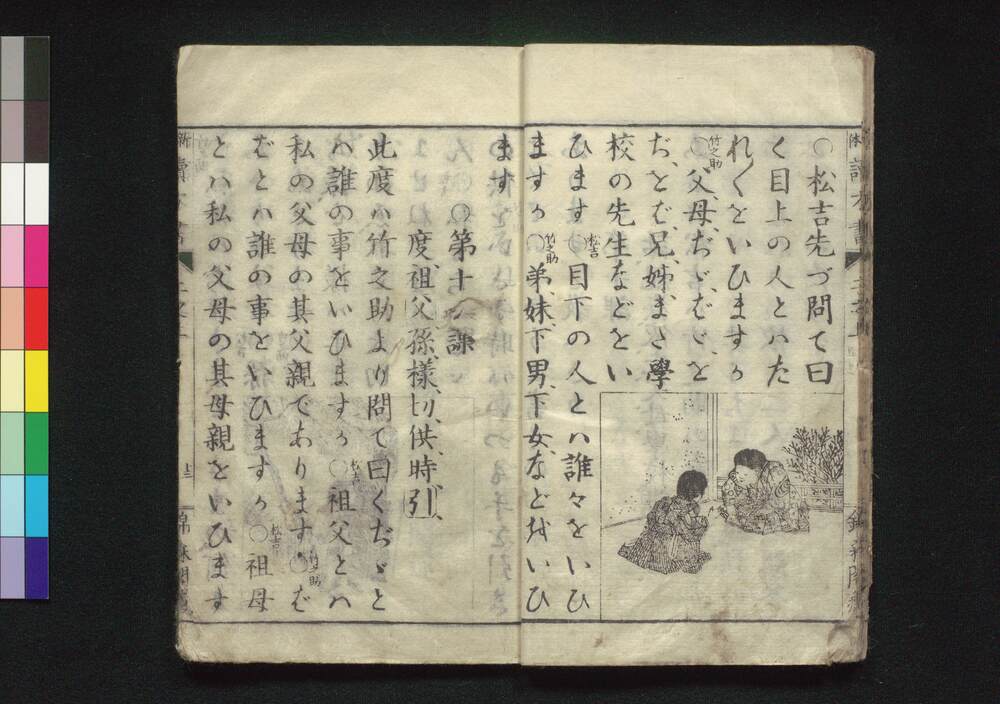 ○松吉先づ問て曰
く目上の人とハた
れ〱をいひますか
○竹之助父、母、ぢゞ、ばゞ、を
ぢ、をば、兄、姉、また學
校の先生などをい
ひます○松吉目下の人とハ誰々をいひ
ますか○竹之助弟、妹、下男、下女、などをいひ
ます
○第十一課
度、祖、父、孫、樣、切、供、時、引、
此度ハ竹之助より問て曰くぢゞと
ハ誰の事をいひますか○松吉祖父とハ
私の父母の其父親であります○竹之助ば
ばとハ誰の事をいひますか○松吉祖母
とハ私の父母の其母親をいひます